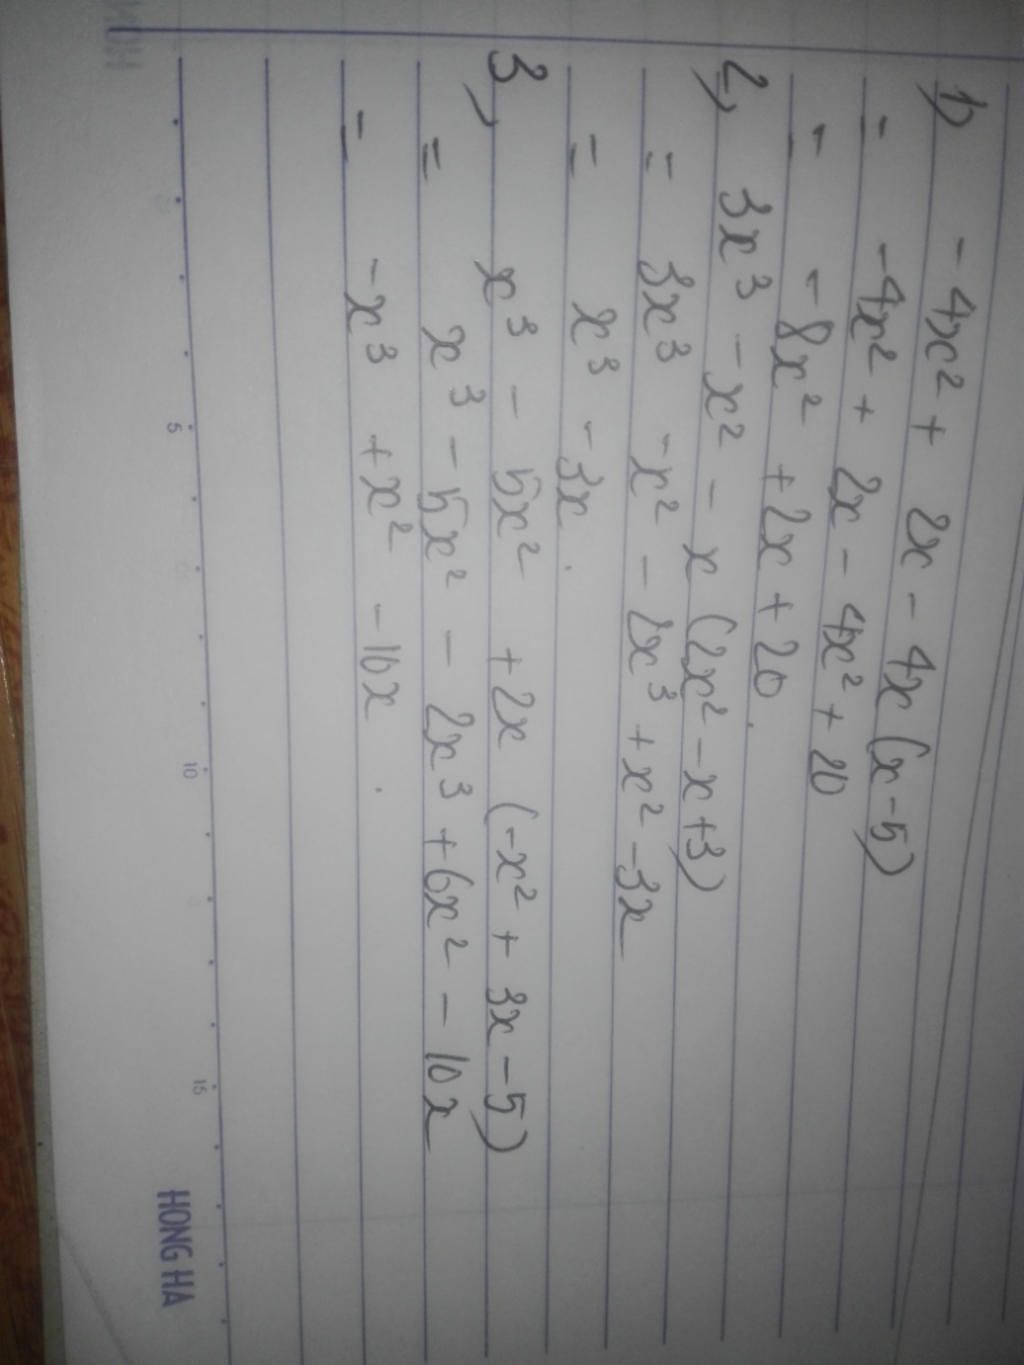 1) - 4x² + 2x - 4x (x - 5)
= - 4x² + 2x - 4x² + 20
= - 8x² + 2x + 20.
2) 3x³ - x² - x (2x² - x + 3)
= 3x³ - x² - 2x³ + x² - 3x
= x³ - 3x.
3) x³ - 5x² + 2x (-x² + 3x - 5)
= x³ - 5x² - 2x³ + 6x² - 10x
= - x³ + x² - 10x.
5 10 15 HONG HA